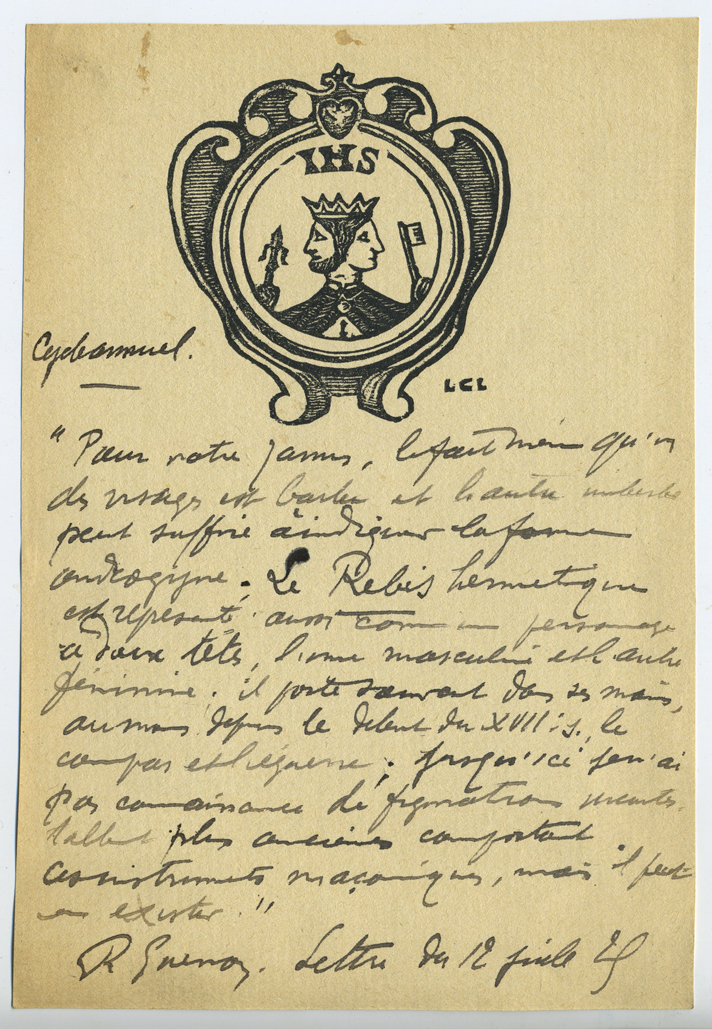 IHS
LCL
"Pour votre Janus, le fait même qu'un
des visages est barbu et l'autre imberbe
peut suffire à indiquer la forme
androgyne. Le Rebis hermétique
est représenté aussi comme un personnage
à deux têtes, l'une masculine et l'autre
féminine; il porte souvent dans ses mains,
au moins depuis le début du XVII: s., le
compas et l'équerre; jusqu'ici je n'ai
pas connaissance de figurations
plus anciennes comportant
ces instruments maçoniques, mais il peut
en exister."
R Guenon. Lettre du 12 juill 25